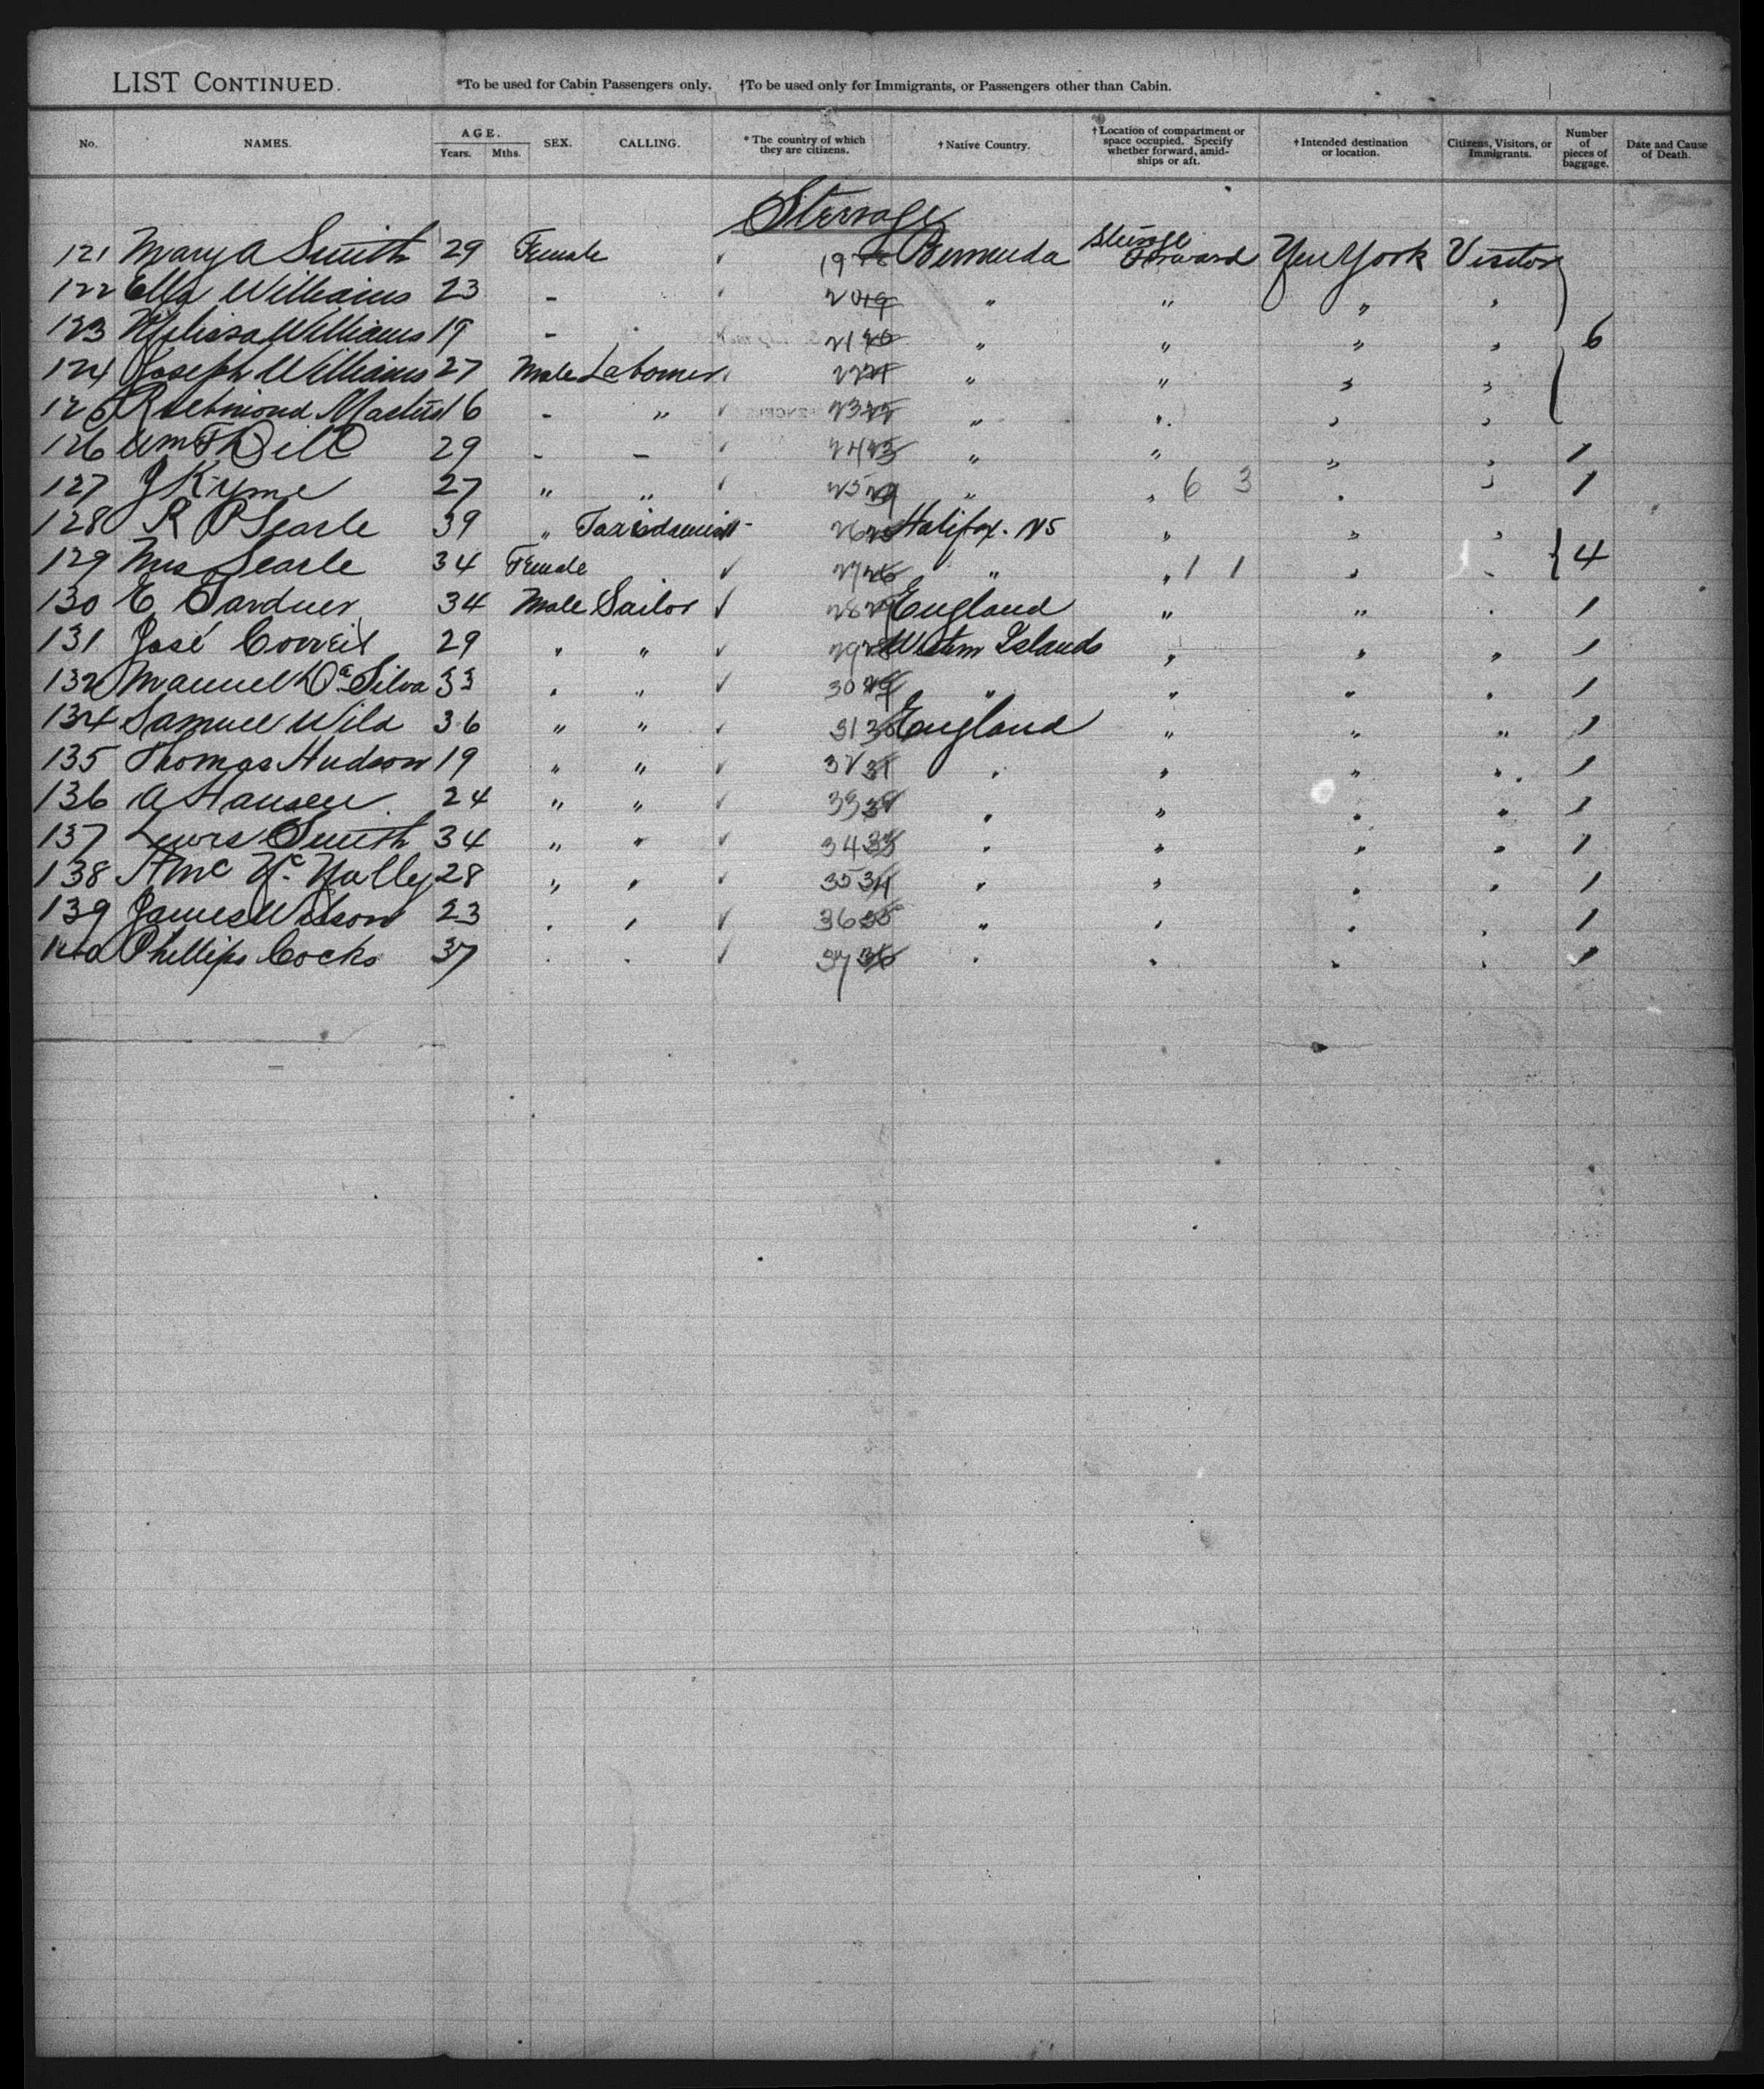 LIST CONTINUED. *To be used for Cabin Passengers only. †To be used only for Immigrants, or Passengers other than Cabin.
No. NAMES. AGE. Years. Mths. SEX. CALLING. * The country of which they are citizens. † Native Country. † Location of compartment or space occupied. Specify whether forward, amid-ships or aft. † Intended destination or location. Citizens, Visitors, or Immigrants. Number of pieces of baggage. Date and Cause of Death.
Steerage
121 Mary A Smith 29 Female ✓ 19 Bermuda Steerage Forward New York Visitor
122 Ella Williams 23 - ✓ 20 19 " " " "
123 Melissa Williams 19 - 21 20 " " " " 6
124 Joseph Williams 27 Male Labourer 22 21 " " " "
125 Masters 16 - " ✓ 23 22 " " " "
126 Wm Dill 29 - - ✓ 24 23 " " " " 1
127 J Kyme 27 " " ✓ 25 24 " " 6 3 " " 1
128 R P Searle 39 " 26 25 Halifax. NS " " "
129 Mrs Searle 34 Female ✓ 27 26 " " 1 1 " " 4
130 E Gardner 34 Male Sailor ✓ 28 27 England " " " 1
131 José 29 " " ✓ 29 28 Western Islands " " " 1
132 Manuel Da Silva 33 " " ✓ 30 29 " " " " 1
134 Samuel Wild 36 " " ✓ 31 30 England " " " 1
135 Thomas Hudson 19 " " ✓ 32 31 " " " " 1
136 A Hansen 24 " " ✓ 33 32 " " " " 1
137 Lewis Smith 34 " " ✓ 34 33 " " " " 1
138 28 " " ✓ 35 34 " " " " 1
139 James Wilson 23 " " ✓ 36 35 " " " " 1
140 Phillips Cocks 37 " " ✓ 37 36 " " " " 1